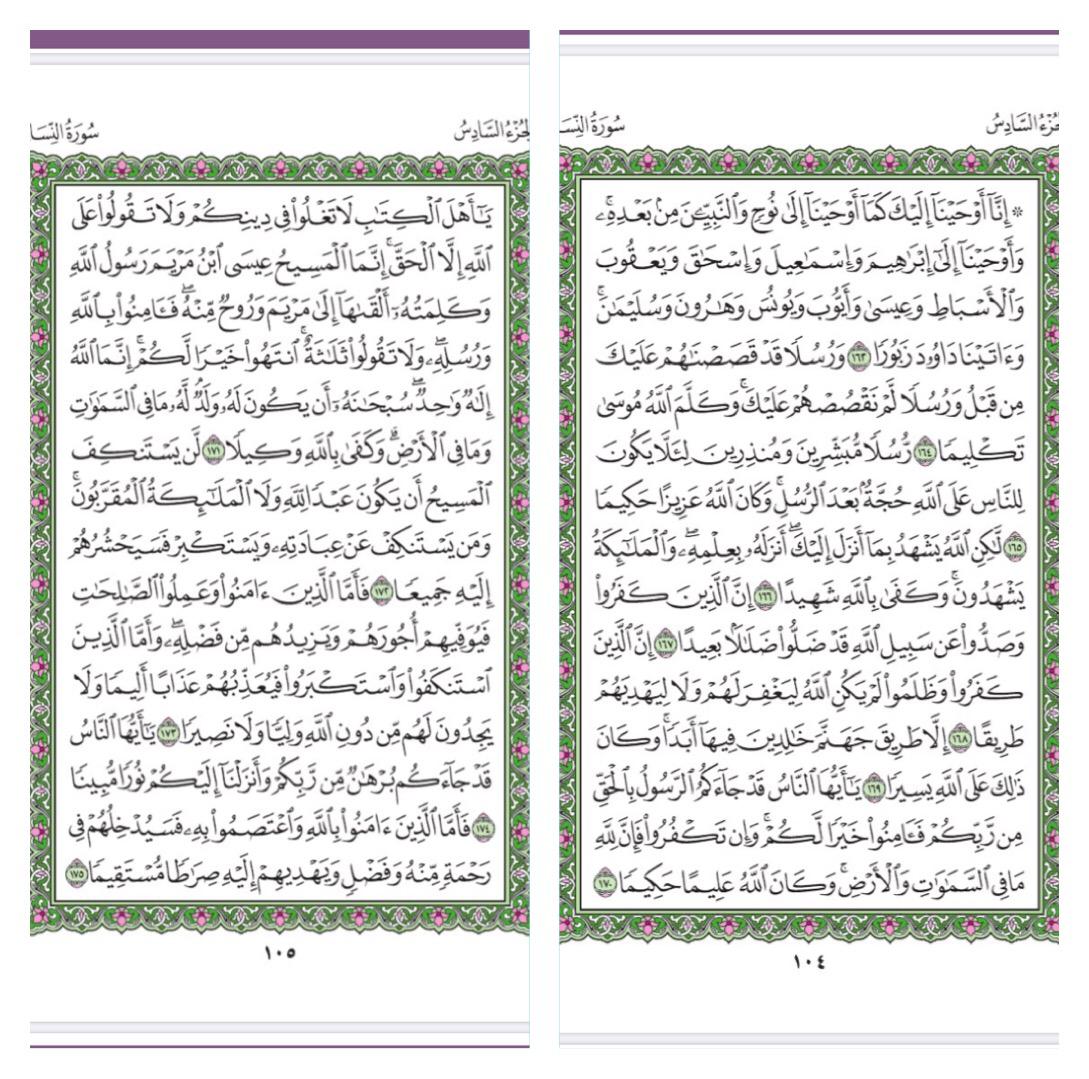 الجزء السادس
سورة النسا
۞ إِنَّآ أَوْحَيْنَآ إِلَيْكَ كَمَآ أَوْحَيْنَآ إِلَىٰ نُوحٍ وَٱلنَّبِيِّـۧنَ مِنۢ بَعْدِهِۦۚ
وَأَوْحَيْنَآ إِلَىٰٓ إِبْرَٰهِيمَ وَإِسْمَٰعِيلَ وَإِسْحَٰقَ وَيَعْقُوبَ
وَٱلْأَسْبَاطِ وَعِيسَىٰ وَأَيُّوبَ وَيُونُسَ وَهَٰرُونَ وَسُلَيْمَٰنَۚ
وَءَاتَيْنَا دَاوُۥدَ زَبُورًا ١٦٣ وَرُسُلًا قَدْ قَصَصْنَٰهُمْ عَلَيْكَ
مِن قَبْلُ وَرُسُلًا لَّمْ نَقْصُصْهُمْ عَلَيْكَۚ وَكَلَّمَ ٱللَّهُ مُوسَىٰ
تَكْلِيمًا ١٦٤ رُّسُلًا مُّبَشِّرِينَ وَمُنذِرِينَ لِئَلَّا يَكُونَ
لِلنَّاسِ عَلَى ٱللَّهِ حُجَّةٌۢ بَعْدَ ٱلرُّسُلِۚ وَكَانَ ٱللَّهُ عَزِيزًا حَكِيمًا
١٦٥ لَّٰكِنِ ٱللَّهُ يَشْهَدُ بِمَآ أَنزَلَ إِلَيْكَۖ أَنزَلَهُۥ بِعِلْمِهِۦۖ وَٱلْمَلَٰٓئِكَةُ
يَشْهَدُونَۚ وَكَفَىٰ بِٱللَّهِ شَهِيدًا ١٦٦ إِنَّ ٱلَّذِينَ كَفَرُوا۟
وَصَدُّوا۟ عَن سَبِيلِ ٱللَّهِ قَدْ ضَلُّوا۟ ضَلَٰلًۢا بَعِيدًا ١٦٧ إِنَّ ٱلَّذِينَ
كَفَرُوا۟ وَظَلَمُوا۟ لَمْ يَكُنِ ٱللَّهُ لِيَغْفِرَ لَهُمْ وَلَا لِيَهْدِيَهُمْ
طَرِيقًا ١٦٨ إِلَّا طَرِيقَ جَهَنَّمَ خَٰلِدِينَ فِيهَآ أَبَدًاۚ وَكَانَ
ذَٰلِكَ عَلَى ٱللَّهِ يَسِيرًا ١٦٩ يَٰٓأَيُّهَا ٱلنَّاسُ قَدْ جَآءَكُمُ ٱلرَّسُولُ بِٱلْحَقِّ
مِن رَّبِّكُمْ فَـَٔامِنُوا۟ خَيْرًا لَّكُمْۚ وَإِن تَكْفُرُوا۟ فَإِنَّ لِلَّهِ
مَا فِى ٱلسَّمَٰوَٰتِ وَٱلْأَرْضِۚ وَكَانَ ٱللَّهُ عَلِيمًا حَكِيمًا ١٧٠
١٠٤
الجزء السادس
سورة النسا
يَٰٓأَهْلَ ٱلْكِتَٰبِ لَا تَغْلُوا۟ فِى دِينِكُمْ وَلَا تَقُولُوا۟ عَلَى
ٱللَّهِ إِلَّا ٱلْحَقَّۚ إِنَّمَا ٱلْمَسِيحُ عِيسَى ٱبْنُ مَرْيَمَ رَسُولُ ٱللَّهِ
وَكَلِمَتُهُۥٓ أَلْقَىٰهَآ إِلَىٰ مَرْيَمَ وَرُوحٌ مِّنْهُۖ فَـَٔامِنُوا۟ بِٱللَّهِ
وَرُسُلِهِۦۖ وَلَا تَقُولُوا۟ ثَلَٰثَةٌۚ ٱنتَهُوا۟ خَيْرًا لَّكُمْۚ إِنَّمَا ٱللَّهُ
إِلَٰهٌ وَٰحِدٌۖ سُبْحَٰنَهُۥٓ أَن يَكُونَ لَهُۥ وَلَدٌۘ لَّهُۥ مَا فِى ٱلسَّمَٰوَٰتِ
وَمَا فِى ٱلْأَرْضِۗ وَكَفَىٰ بِٱللَّهِ وَكِيلًا ١٧١ لَّن يَسْتَنكِفَ
ٱلْمَسِيحُ أَن يَكُونَ عَبْدًا لِّلَّهِ وَلَا ٱلْمَلَٰٓئِكَةُ ٱلْمُقَرَّبُونَۚ
وَمَن يَسْتَنكِفْ عَنْ عِبَادَتِهِۦ وَيَسْتَكْبِرْ فَسَيَحْشُرُهُمْ
إِلَيْهِ جَمِيعًا ١٧٢ فَأَمَّا ٱلَّذِينَ ءَامَنُوا۟ وَعَمِلُوا۟ ٱلصَّٰلِحَٰتِ
فَيُوَفِّيهِمْ أُجُورَهُمْ وَيَزِيدُهُم مِّن فَضْلِهِۦۖ وَأَمَّا ٱلَّذِينَ
ٱسْتَنكَفُوا۟ وَٱسْتَكْبَرُوا۟ فَيُعَذِّبُهُمْ عَذَابًا أَلِيمًا وَلَا
يَجِدُونَ لَهُم مِّن دُونِ ٱللَّهِ وَلِيًّا وَلَا نَصِيرًا ١٧٣ يَٰٓأَيُّهَا ٱلنَّاسُ
قَدْ جَآءَكُم بُرْهَٰنٌ مِّن رَّبِّكُمْ وَأَنزَلْنَآ إِلَيْكُمْ نُورًا مُّبِينًا
١٧٤ فَأَمَّا ٱلَّذِينَ ءَامَنُوا۟ بِٱللَّهِ وَٱعْتَصَمُوا۟ بِهِۦ فَسَيُدْخِلُهُمْ فِى
رَحْمَةٍ مِّنْهُ وَفَضْلٍ وَيَهْدِيهِمْ إِلَيْهِ صِرَٰطًا مُّسْتَقِيمًا ١٧٥
١٠٥